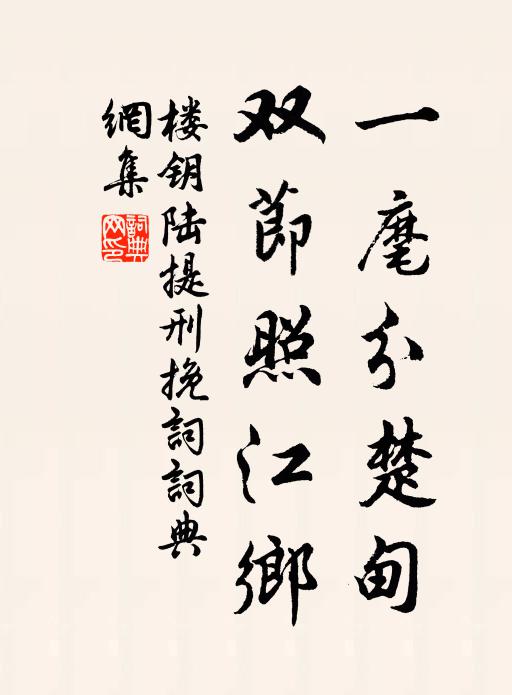 一麾分楚甸
双節照江鄉
楼钥陆提刑挽詞詞典
網集
詞典網印